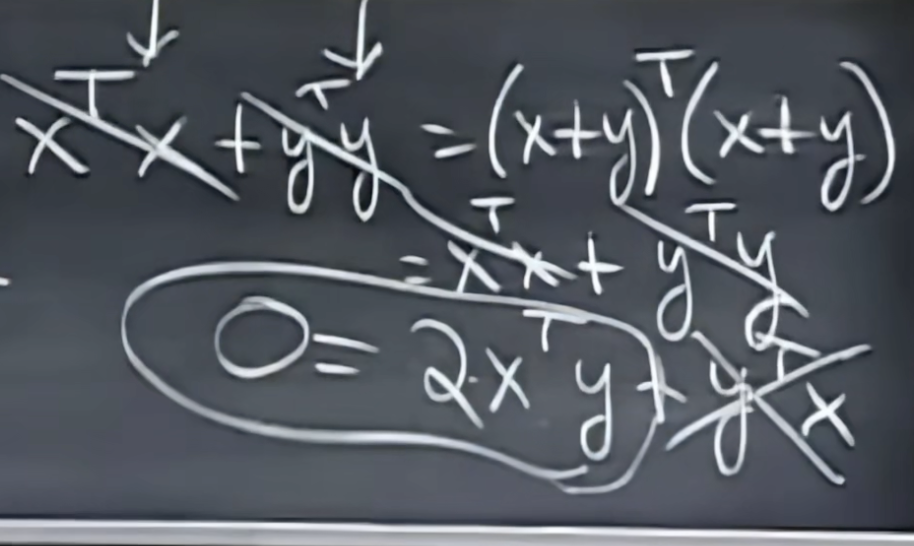 xᵀx + yᵀy = (x+y)ᵀ(x+y)
= xᵀx + yᵀy
0 = 2xᵀy + yᵀx